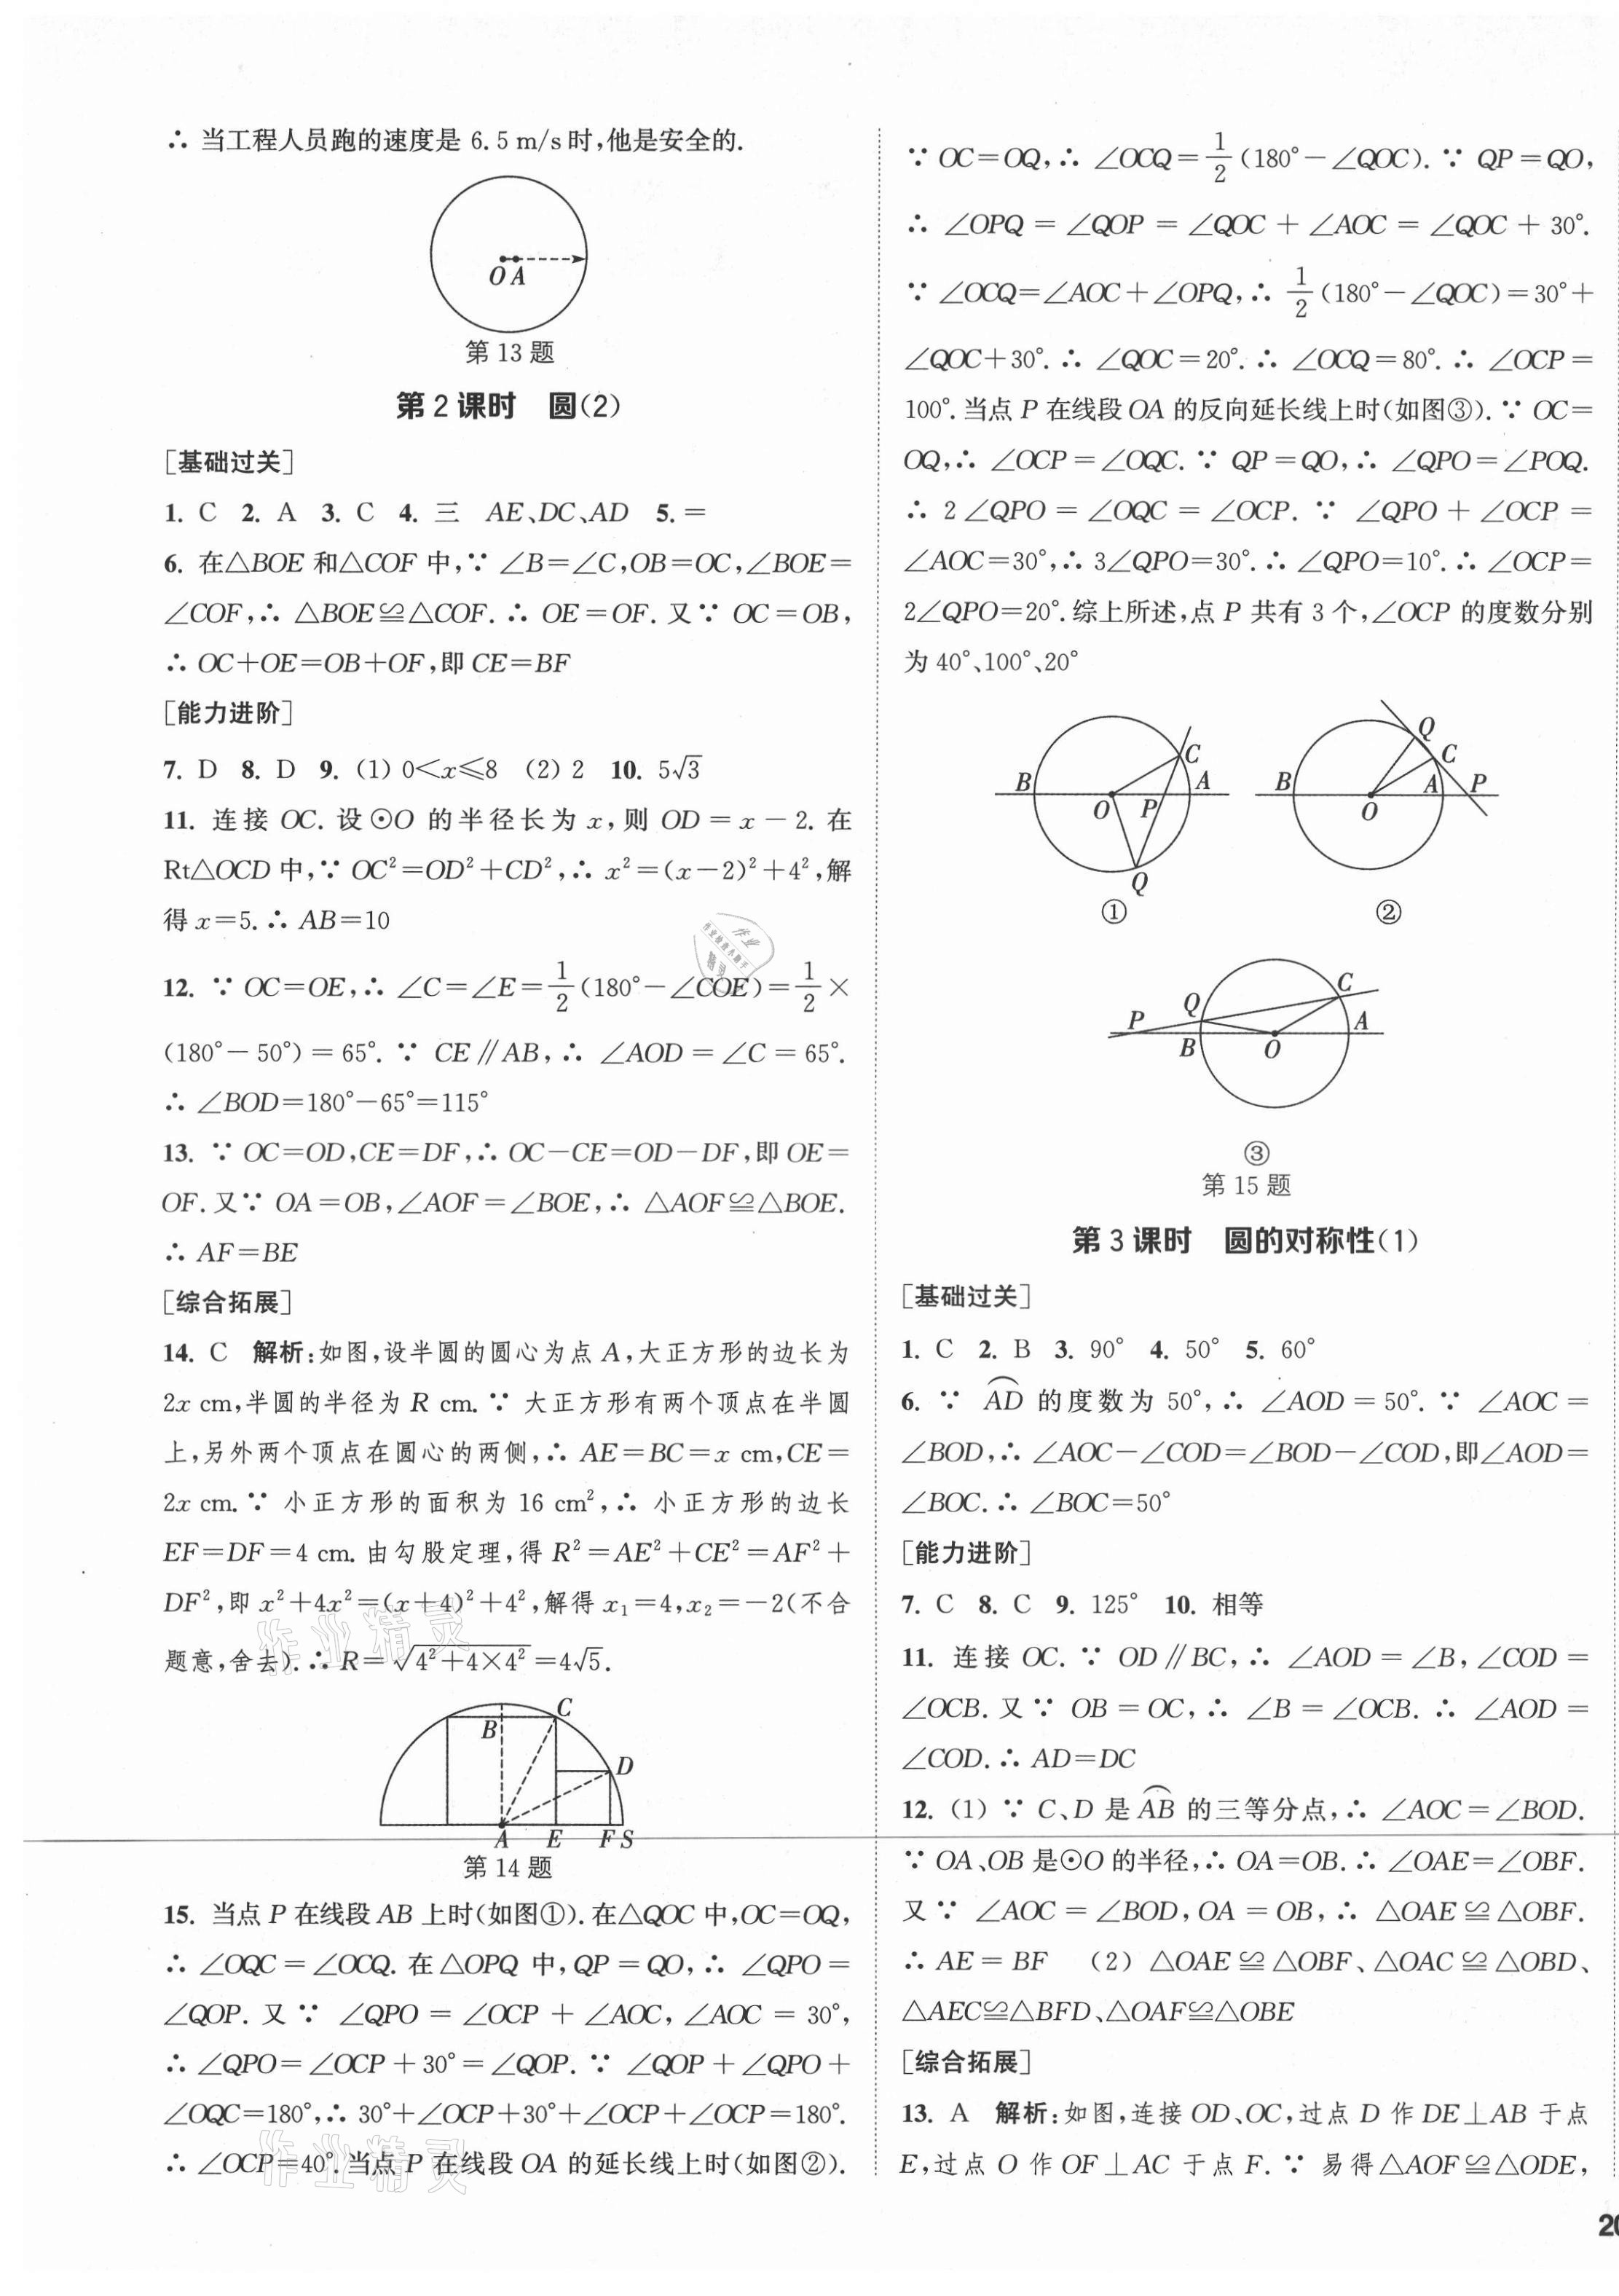 ∴ 当工程人员跑的速度是 6.5 m/s时,他是安全的.
O A
第 13 题
第 2 课时　圆(2)
[基础过关]
1. C 2. A 3. C 4. 三　AE、DC、AD 5. =
6. 在△BOE 和△COF 中,∵ ∠B=∠C,OB=OC,∠BOE=
∠COF,∴ △BOE≌△COF.∴ OE=OF.又∵ OC=OB,
∴ OC+OE=OB+OF,即CE=BF
[能力进阶]
7. D 8. D 9. (1) 0<x≤8 (2) 2 10. 5√3
11. 连接 OC. 设⊙O 的半径长为 x,则 OD=x-2. 在
Rt△OCD 中,∵ OC²=OD²+CD²,∴ x²=(x-2)²+4²,解
得 x=5.∴ AB=10
12. ∵ OC=OE,∴ ∠C=∠E=1/2(180°-∠COE)=1/2×
(180°-50°)=65°.∵ CE∥AB,∴ ∠AOD=∠C=65°.
∴ ∠BOD=180°-65°=115°
13. ∵ OC=OD,CE=DF,∴ OC-CE=OD-DF,即OE=
OF.又∵ OA=OB,∠AOF=∠BOE,∴ △AOF≌△BOE.
∴ AF=BE
[综合拓展]
14. C 解析:如图,设半圆的圆心为点 A,大正方形的边长为
2x cm,半圆的半径为 R cm.∵ 大正方形有两个顶点在半圆
上,另外两个顶点在圆心的两侧,∴ AE=BC=x cm,CE=
2x cm.∵ 小正方形的面积为 16 cm²,∴ 小正方形的边长
EF=DF=4 cm. 由勾股定理,得 R²=AE²+CE²=AF²+
DF²,即 x²+4x²=(x+4)²+4²,解得 x₁=4,x₂=-2(不合
题意,舍去).∴ R=√(4²+4×4²)=4√5.
B C
D
A E F S
第 14 题
15. 当点 P 在线段 AB 上时(如图①).在△QOC 中,OC=OQ,
∴ ∠OQC=∠OCQ. 在△OPQ 中,QP=QO,∴ ∠QPO=
∠QOP. 又∵ ∠QPO=∠OCP+∠AOC,∠AOC=30°,
∴ ∠QPO=∠OCP+30°=∠QOP.∵ ∠QOP+∠QPO+
∠OQC=180°,∴ 30°+∠OCP+30°+∠OCP+∠OCP=180°.
∴ ∠OCP=40°.当点 P 在线段 OA 的延长线上时(如图②).
∵ OC=OQ,∴ ∠OCQ=1/2(180°-∠QOC).∵ QP=QO,
∴ ∠OPQ=∠QOP=∠QOC+∠AOC=∠QOC+30°.
∵ ∠OCQ=∠AOC+∠OPQ,∴ 1/2(180°-∠QOC)=30°+
∠QOC+30°.∴ ∠QOC=20°.∴ ∠OCQ=80°.∴ ∠OCP=
100°.当点 P 在线段 OA 的反向延长线上时(如图③).∵ OC=
OQ,∴ ∠OCP=∠OQC.∵ QP=QO,∴ ∠QPO=∠POQ.
∴ 2∠QPO=∠OQC=∠OCP.∵ ∠QPO+∠OCP=
∠AOC=30°,∴ 3∠QPO=30°.∴ ∠QPO=10°.∴ ∠OCP=
2∠QPO=20°.综上所述,点 P 共有 3 个,∠OCP 的度数分别
为 40°、100°、20°
B O P A C Q
①
B O A P C Q
②
P Q B O A C
③
第 15 题
第 3 课时　圆的对称性(1)
[基础过关]
1. C 2. B 3. 90° 4. 50° 5. 60°
6. ∵ ⌒AD 的度数为 50°,∴ ∠AOD=50°.∵ ∠AOC=
∠BOD,∴ ∠AOC-∠COD=∠BOD-∠COD,即∠AOD=
∠BOC.∴ ∠BOC=50°
[能力进阶]
7. C 8. C 9. 125° 10. 相等
11. 连接 OC.∵ OD∥BC,∴ ∠AOD=∠B,∠COD=
∠OCB. 又∵ OB=OC,∴ ∠B=∠OCB.∴ ∠AOD=
∠COD.∴ AD=DC
12. (1) ∵ C、D 是⌒AB 的三等分点,∴ ∠AOC=∠BOD.
∵ OA、OB 是⊙O 的半径,∴ OA=OB.∴ ∠OAE=∠OBF.
又∵ ∠AOC=∠BOD,OA=OB,∴ △OAE≌△OBF.
∴ AE=BF (2) △OAE≌△OBF、△OAC≌△OBD、
△AEC≌△BFD、△OAF≌△OBE
[综合拓展]
13. A 解析:如图,连接 OD、OC,过点 D 作 DE⊥AB 于点
E,过点 O 作 OF⊥AC 于点 F.∵ 易得△AOF≌△ODE,
20
作业精灵
作业精灵